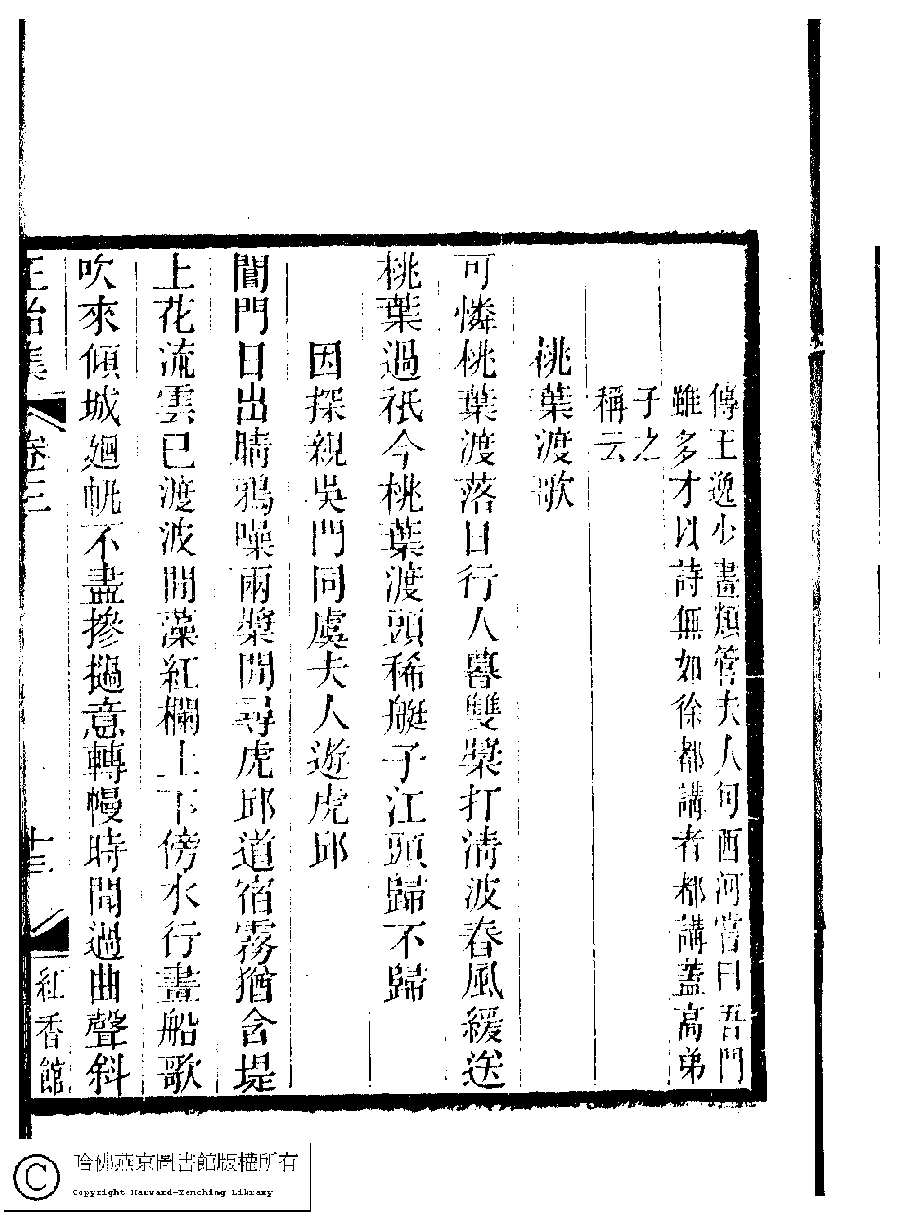 傳王逸少畫類管夫人句西河嘗曰吾門
雖多才以詩無如徐都講者都講蓋高弟
子之
稱云
桃葉渡歌
可憐桃葉渡落日行人暮雙槳打清波春風緩送
桃葉過祇今桃葉渡頭稀艇子江頭歸不歸
因探親吳門同虞夫人遊虎邱
閶門日出晴鴉噪兩槳開尋虎邱道宿霧猶含堤
上花流雲已渡波間藻紅欄上下傍水行畫船歌
吹來傾城廻帆不盡摻撾意轉幔時聞過曲聲斜
正始集
卷三
十三
紅香館
哈佛燕京圖書館版權所有
Copyright Harvard-Yenching Library